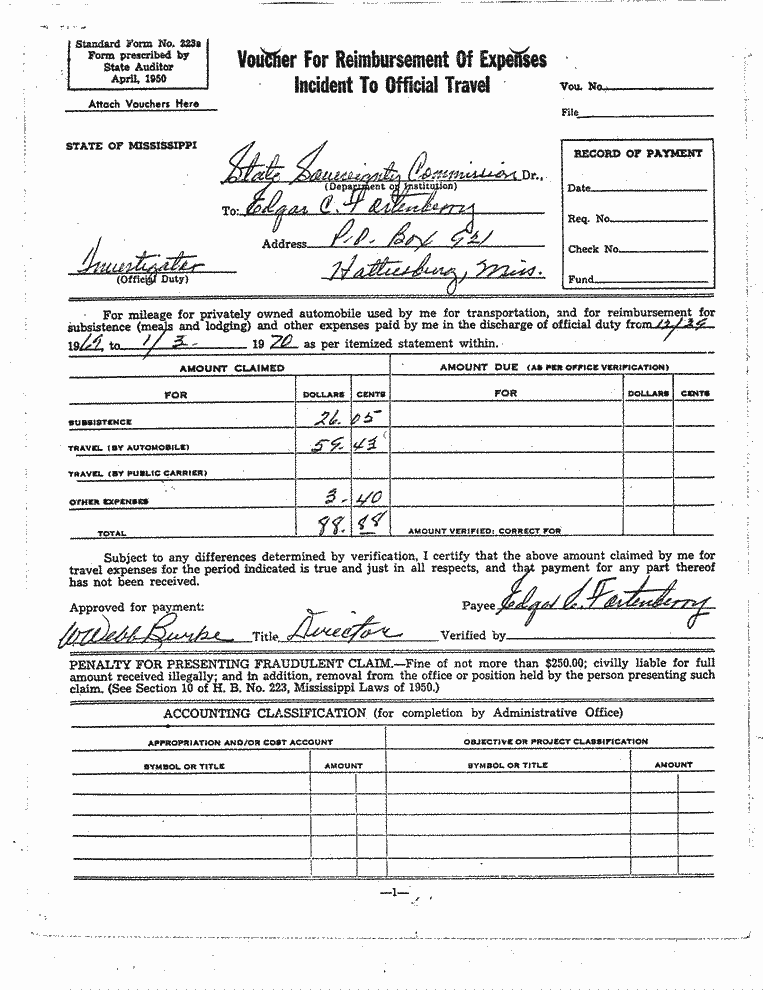 Standard Form No. 223a
Form prescribed by
State Auditor
April, 1950
Attach Vouchers Here
Voucher For Reimbursement Of Expenses
Incident To Official Travel
Vou. No.
File
STATE OF MISSISSIPPI
State Sovereignty Commission Dr.,
(Department or Institution)
To: Edgar C. Fortenberry
Address P.O. Box 921
Hattiesburg, Miss.
Investigator
(Official Duty)
RECORD OF PAYMENT
Date
Req. No.
Check No.
Fund
For mileage for privately owned automobile used by me for transportation, and for reimbursement for
subsistence (meals and lodging) and other expenses paid by me in the discharge of official duty from 12/29
1969 to 1/3- 1970 as per itemized statement within.
AMOUNT CLAIMED AMOUNT DUE (AS PER OFFICE VERIFICATION)
FOR DOLLARS CENTS FOR DOLLARS CENTS
SUBSISTENCE 26. 05
TRAVEL (BY AUTOMOBILE) 59. 43
TRAVEL (BY PUBLIC CARRIER)
OTHER EXPENSES 3- 40
TOTAL 88. 88 AMOUNT VERIFIED; CORRECT FOR
Subject to any differences determined by verification, I certify that the above amount claimed by me for
travel expenses for the period indicated is true and just in all respects, and that payment for any part thereof
has not been received.
Approved for payment: Payee Edgar C. Fortenberry
W Webb Burke Title Director Verified by
PENALTY FOR PRESENTING FRAUDULENT CLAIM.—Fine of not more than $250.00; civilly liable for full
amount received illegally; and in addition, removal from the office or position held by the person presenting such
claim. (See Section 10 of H. B. No. 223, Mississippi Laws of 1950.)
ACCOUNTING CLASSIFICATION (for completion by Administrative Office)
APPROPRIATION AND/OR COST ACCOUNT OBJECTIVE OR PROJECT CLASSIFICATION
SYMBOL OR TITLE AMOUNT SYMBOL OR TITLE AMOUNT
—1—